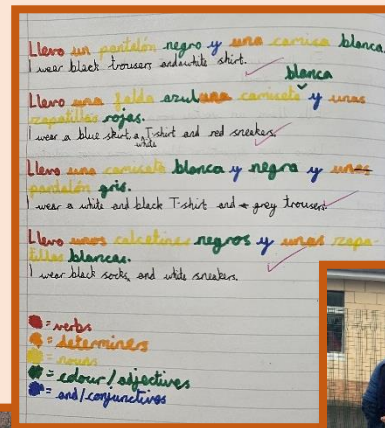 Llevo un pantalón negro y una camisa blanca.
I wear black trousers and a white shirt.
blanca
Llevo una falda azul una camiseta y unas
zapatillas rojas.
I wear a blue skirt, a T-shirt and red sneakers.
white
Llevo una camiseta blanca y negra y unas
pantalón gris.
I wear a white and black T-shirt and grey trousers.
Llevo unos calcetines negros y unas zapa-
tillas blancas.
I wear black socks and white sneakers.
= verbs
= determiners
= nouns
= colour / adjectives
= and / conjunctives